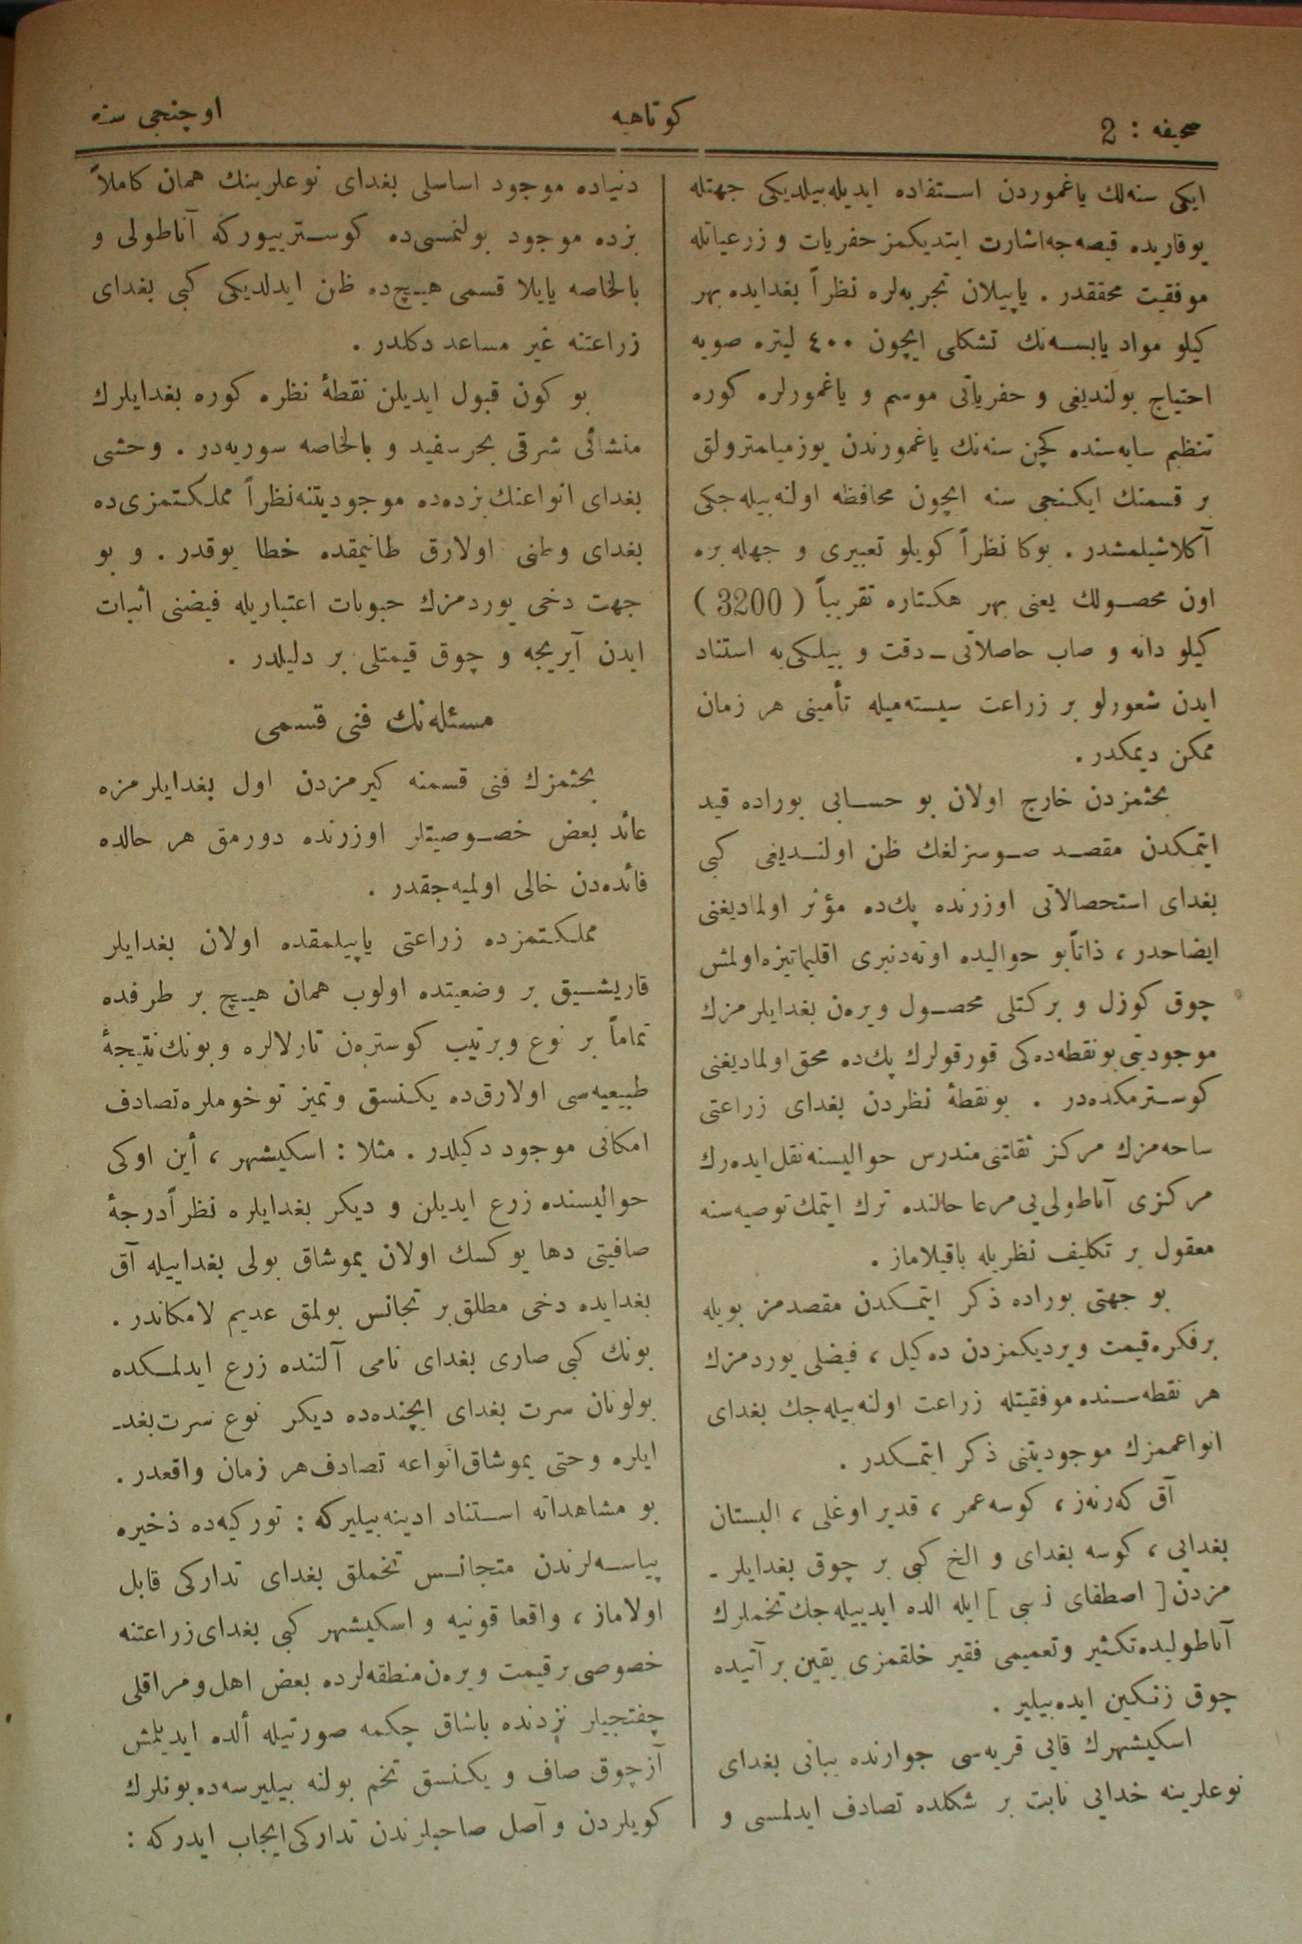 صحيفه : 2
كوتاهيه
اوچنجى سنه
ايكى سنه‌لك ياغموردن استفاده ايديله‌بيلديكى جهتله
يوقاريده قيصه‌جه اشارت ايتديكمز حفريات و زرعياتله
موفقيت محققدر . ياپيلان تجربه‌لره نظراً بغدايده بهر
كيلو مواد يابسه‌نك تشكلى ايچون ٤٠٠ ليتره صويه
احتياج بولنديغى و حفرياتى موسم و ياغمورلره كوره
تنظيم سايه‌سنده كچن سنه‌نك ياغمورندن يوز ميليمترولق
بر قسمنك ايكنجى سنه ايچون محافظه اولنه‌بيله‌جكى
آكلاشيلمشدر . بوكا نظراً كويلو تعبيرى و جهله بره
اون محصولك يعنى بهر هكتاره تقريباً ( 3200 )
كيلو دانه و صاپ حاصلاتى ــ دقت و بيلكى‌يه استناد
ايدن شعورلو بر زراعت سيسته‌ميله تأمينى هر زمان
ممكن ديمكدر .
بحثمزدن خارج اولان بو حسابى بوراده قيد
ايتمكدن مقصد صوسزلغك ظن اولنديغى كبى
بغداى استحصالاتى اوزرنده پك‌ده مؤثر اولماديغنى
ايضاحدر ، ذاتاً بو حواليده اوته‌دنبرى اقليماتيزه اولمش
چوق كوزل و بركتلى محصول ويرەن بغدايلرمزك
موجوديتى بونقطه‌ده‌كى قورقولرك پك‌ده محق اولماديغنى
كوسترمكده‌در . بونقطۀ نظردن بغداى زراعتى
ساحه‌مزك مركز ثقلتنى مندرس حواليسنه نقل ايده‌رك
مركزى آناطولى‌يى مرعا حالنده ترك ايتمك توصيه‌سنه
معقول بر تكليف نظريله باقيلاماز .
بو جهتى بوراده ذكر ايتمكدن مقصدمز بويله
برفكره قيمت ويرديكمزدن ده‌كيل ، فيضلى يوردمزك
هر نقطه‌سنده موفقيتله زراعت اولنه‌بيله‌جك بغداى
انواعمزك موجوديتنى ذكر ايتمكدر .
آق كه‌رنه‌ز ، كوسه عمر ، قدير اوغلى ، البستان
بغدايى ، كوسه بغداى و الخ كبى بر چوق بغدايلر ـ
مزدن [ اصطفاى نسبى ] ايله الده ايديبيله‌جك تخملرك
آناطوليده تكثير وتعميمى فقير خلقمزى يقين بر آتيده
چوق زنكين ايده‌بيلير .
اسكيشهرك قانى قريه‌سى جوارنده يبانى بغداى
نوعلرينه خدايى نابت بر شكلده تصادف ايدلمسى و
دنياده موجود اساسلى بغداى نوعلرينك همان كاملاً
بزده موجود بولنمسى‌ده كوستريیوركه آناطولى و
بالخاصه يايلا قسمى هيچ‌ده ظن ايدلديكى كبى بغداى
زراعتنه غير مساعد دكلدر .
بو كون قبول ايديلن نقطۀ نظره كوره بغدايلرك
منشائى شرقى بحرسفيد و بالخاصه سوريه‌در . وحشى
بغداى انواعنك بزده‌ده موجوديتنه نظراً مملكتمزى‌ده
بغداى وطنى اولارق طانيمقده خطا يوقدر . و بو
جهت دخى يوردمزك حبوبات اعتباريله فيضنى اثبات
ايدن آيريجه و چوق قيمتلى بر دليلدر .
مسئله‌نك فنى قسمى
بحثمزك فنى قسمنه كيرمزدن اول بغدايلرمزه
عائد بعض خصوصيتلر اوزرنده دورمق هر حالده
فائده‌دن خالى اولميه‌جقدر .
مملكتمزده زراعتى ياپيلمقده اولان بغدايلر
قاريشيق بر وضعيتده اولوب همان هيچ بر طرفده
تماماً بر نوع وبرتيپ كوسترەن تارلالره و بونك نتيجۀ
طبيعيه‌سى اولارق‌ده يكنسق وتميز توخوملره تصادف
امكانى موجود دكيلدر . مثلا : اسكيشهر ، أين اوكى
حواليسنده زرع ايديلن و ديكر بغدايلره نظراً درجۀ
صافيتى دها يوكسك اولان يموشاق بولى بغداييله آق
بغدايده دخى مطلق بر تجانس بولمق عديم لامكاندر .
بونك كبى صارى بغداى نامى آلتنده زرع ايدلمكده
بولونان سرت بغداى ايچنده‌ده ديكر نوع سرت بغد ـ
ايلره وحتى يموشاق انواعه تصادف هر زمان واقعدر .
بو مشاهداته استناد ادينه‌بيليركه : توركيه‌ده ذخيره
پياسه‌لرندن متجانس تخملق بغداى تداركى قابل
اولاماز ، واقعا قونيه و اسكيشهر كبى بغداى زراعتنه
خصوصى بر قيمت ويرەن منطقه‌لرده بعض اهل ومراقلى
چفتجيلر نزدنده باشاق چكمه صورتيله ألده ايديلمش
آز چوق صاف و يكنسق تخم بولنه بيليرسه‌ده بونلرك
كويلردن و آصل صاحبلرندن تداركى ايجاب ايدركه :